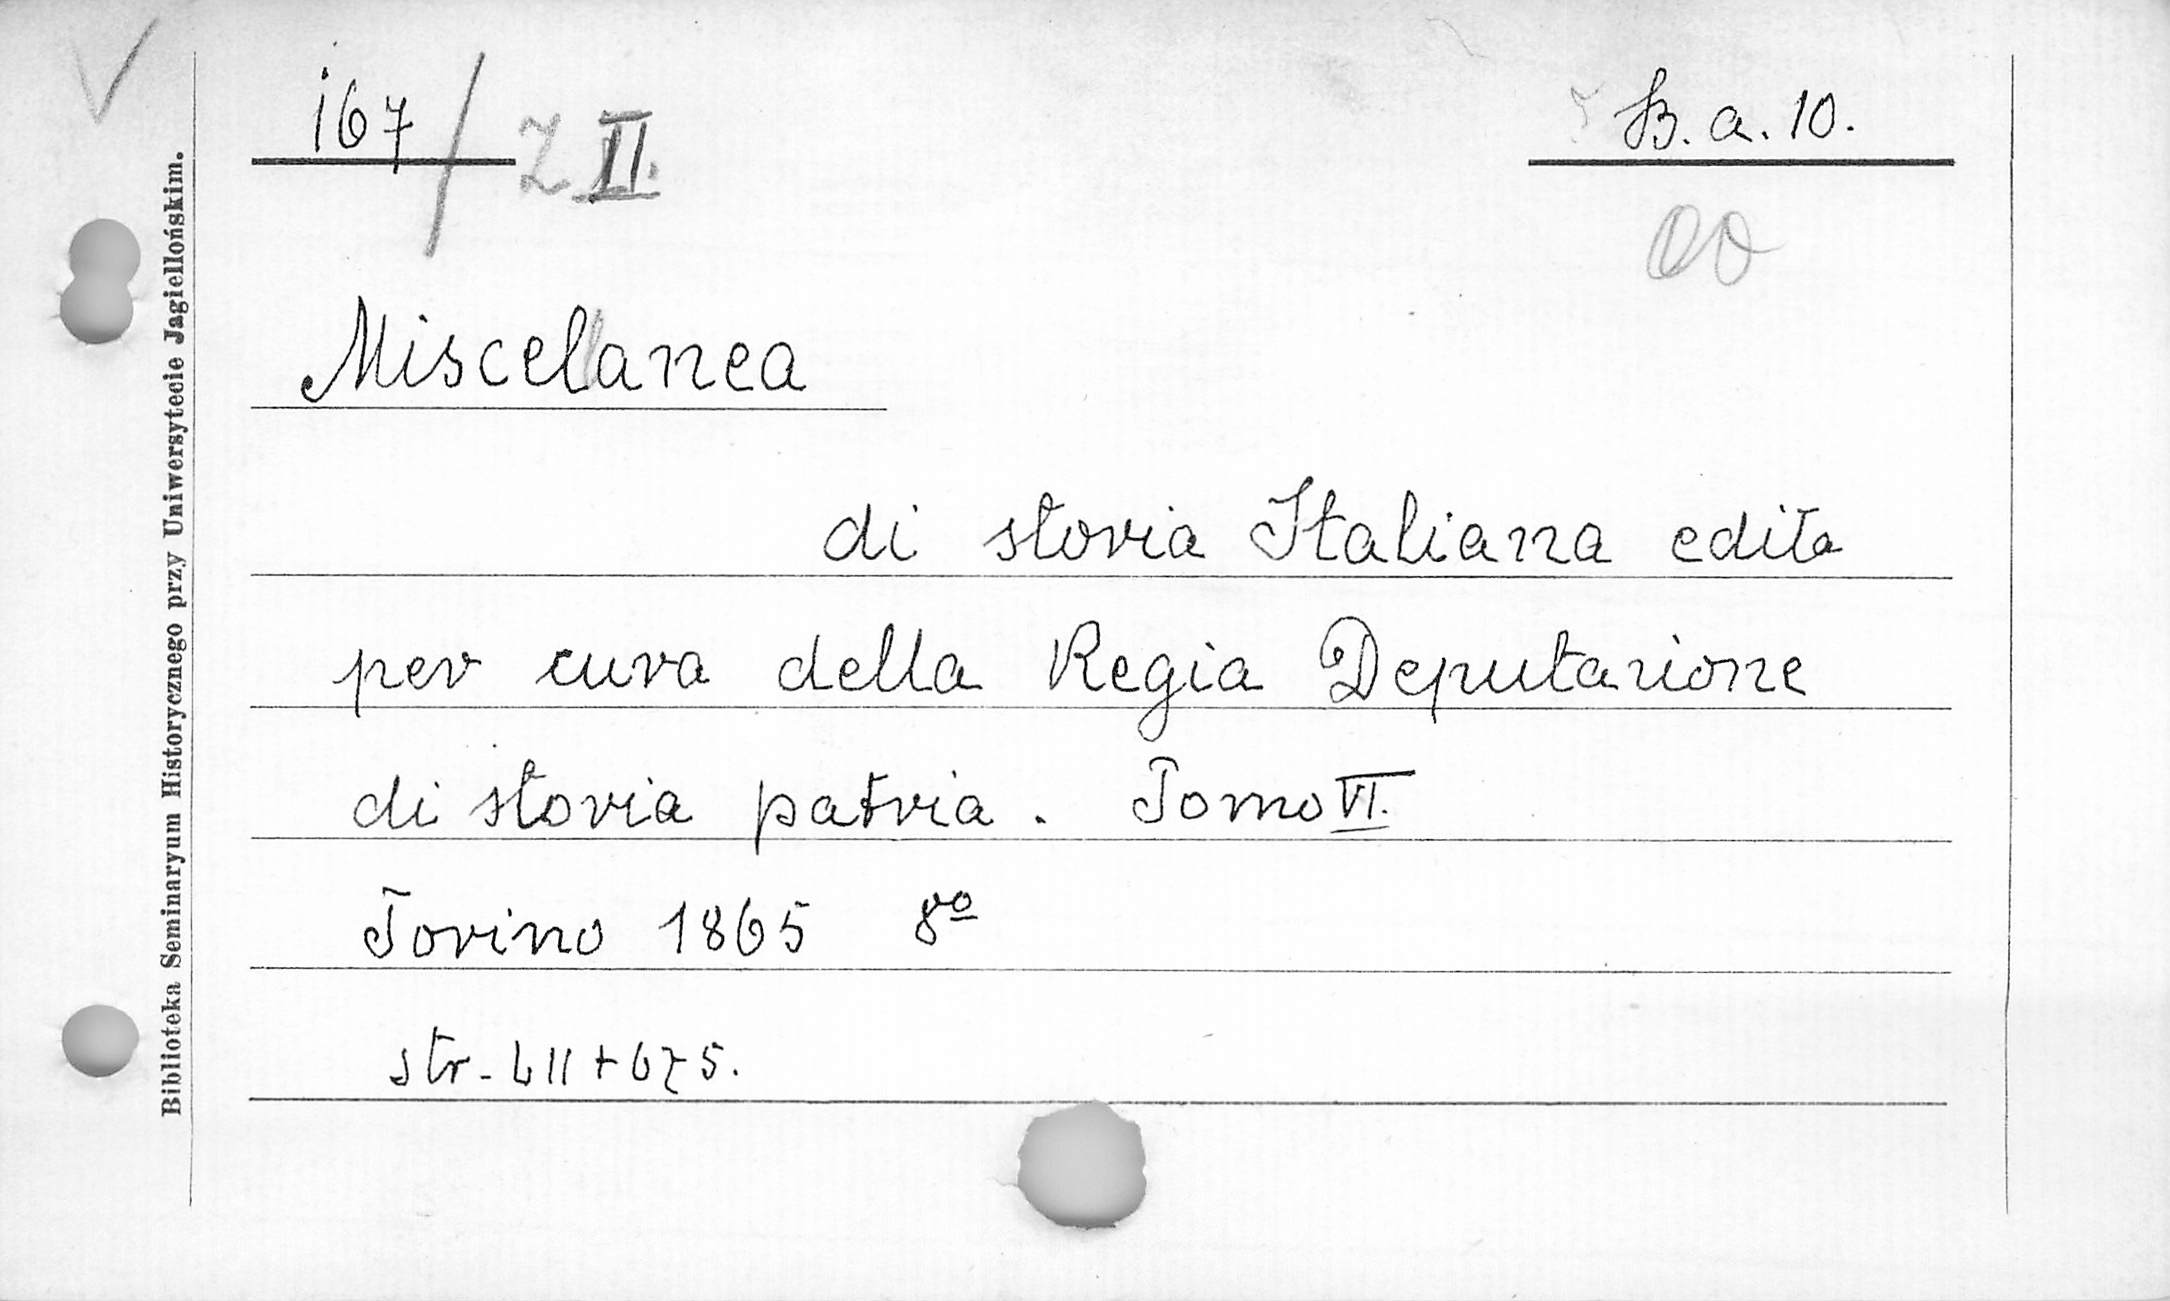 167/Z II. B. a. 10.
00
Miscellanea
di storia Italiana edita
per cura della Regia Deputazione
di storia patria. Tomo VI.
Torino 1865 8º
str. LII + 675.
Biblioteka Seminaryum Historycznego przy Uniwersytecie Jagiellońskim.